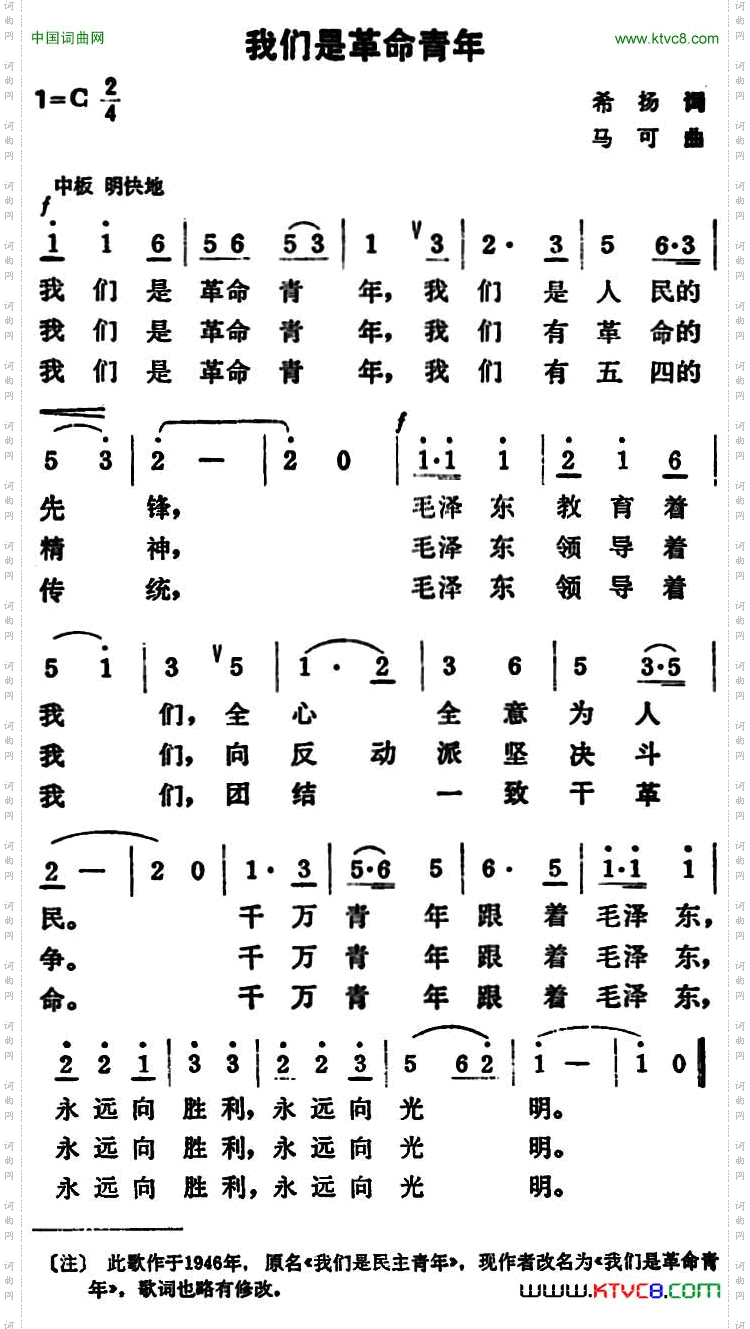 中国词曲网
我们是革命青年
www.ktvc8.com
1=C 2/4
希扬 词
马可 曲
中板 明快地
f
1 1 6 | 5 6 5 3 | 1 V 3 | 2· 3 | 5 6·3 |
我们是革命青年，我们是人民的
我们是革命青年，我们有革命的
我们是革命青年，我们有五四的
f
5 3 | 2 — | 2 0 | 1·1 1 | 2 1 6 |
先锋，毛泽东教育着
精神，毛泽东领导着
传统，毛泽东领导着
5 1 | 3 V 5 | 1· 2 | 3 6 | 5 3·5 |
我们，全心全意为人
我们，向反动派坚决斗
我们，团结一致干革
2 — | 2 0 | 1· 3 | 5·6 5 | 6· 5 | 1·1 1 |
民。千万青年跟着毛泽东，
争。千万青年跟着毛泽东，
命。千万青年跟着毛泽东，
2 2 1 | 3 3 | 2 2 3 | 5 6 2 | 1 — | 1 0 ‖
永远向胜利，永远向光明。
永远向胜利，永远向光明。
永远向胜利，永远向光明。
〔注〕 此歌作于1946年，原名《我们是民主青年》，现作者改名为《我们是革命青
年》，歌词也略有修改。
www.KTVC8.com